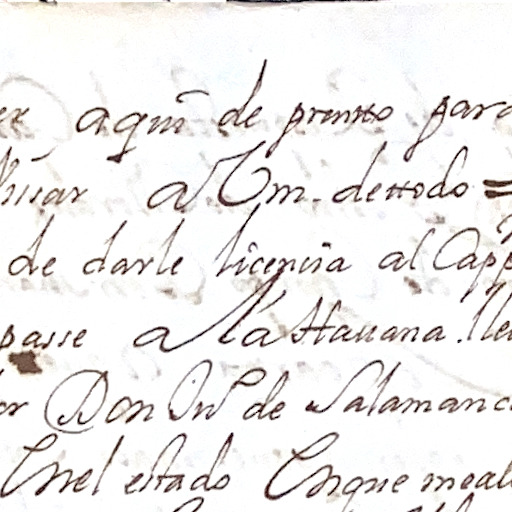 aqui de prentto para
a Vm. dettodo =
de darle licencia al Capp
passe a la Hauana. lle
or Don Ju de Salamanc
Enel estado Enque meal